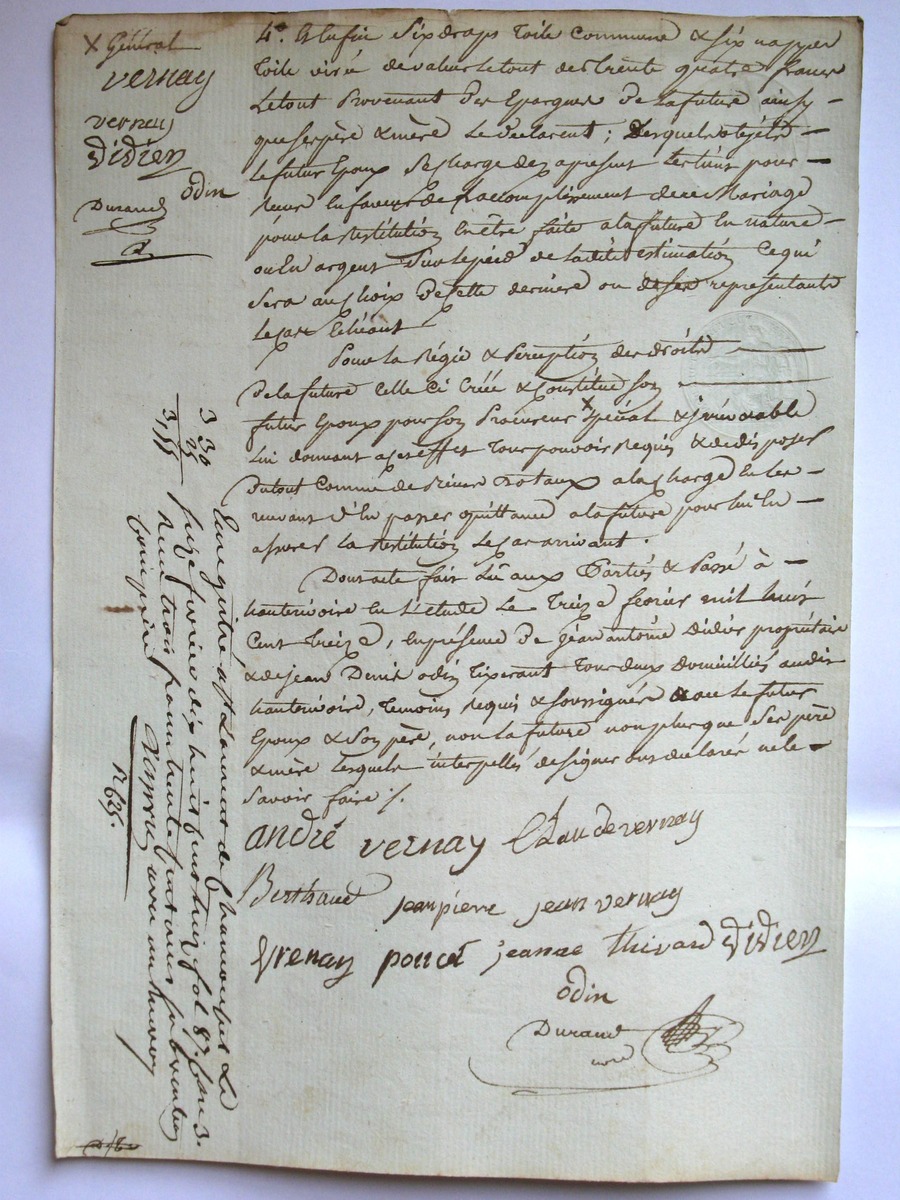 X Général
vernay
vernay
Didier
odin
Durand
4°. Et Enfin Six draps toile Commune & six nappes
toile virée de valeur le tout de trente quatre francs
Le tout Provenant des Epargnes De la future ainsy
que ses père & mère Le déclarent ; Desquels objets
Le futur Epoux Se charge dès apresent Se tient pour
En faveur de l'accomplissement de ce Mariage
pour la Restitution En être faite a la future En nature
ou En argent Sur le pied de la dite estimation Ce qui
Sera au choix De Cette dernière ou de ses representants
Le cas Echéant
Pour la Régie & Perception des droits
De la future Celle Ci Crée & Constitue son
futur Epoux pour son Procureur X Spécial & irrévocable
Lui donnant a cet effet Tous pouvoirs Requis & de disposer
Du tout Comme de Biens Dotaux a la charge En les
recevant d'En passer quittance a la future pour lui En
assurer La Restitution Le Cas arrivant.
Dont acte fait Lu aux Parties & Passé à
hauterivoire En l'étude Le Treize fevrier mil huit
Cent Treize, En présence De Jean antoine Didier propriétaire
& de jean Denis odin Tixerant Tous deux domiciliés audit
hauterivoire, temoins Requis & Soussignés avec Le futur
Epoux & Son père, non La future non plus que Ses père
& mère Lesquels interpellés de signer ont déclaré ne le
Savoir faire /.
andré vernay Claude vernay
Berthaud jean pierre jean vernay
vrenay poncet jeanne thivard Didier
odin
Durand
nore
Enregistré à St Laurent de Chamousset Le
seize fevrier dix huit cent treize fol. 87. Case 3.
Reçu trois francs trente centimes subvention
compris
3 30
25
3,55